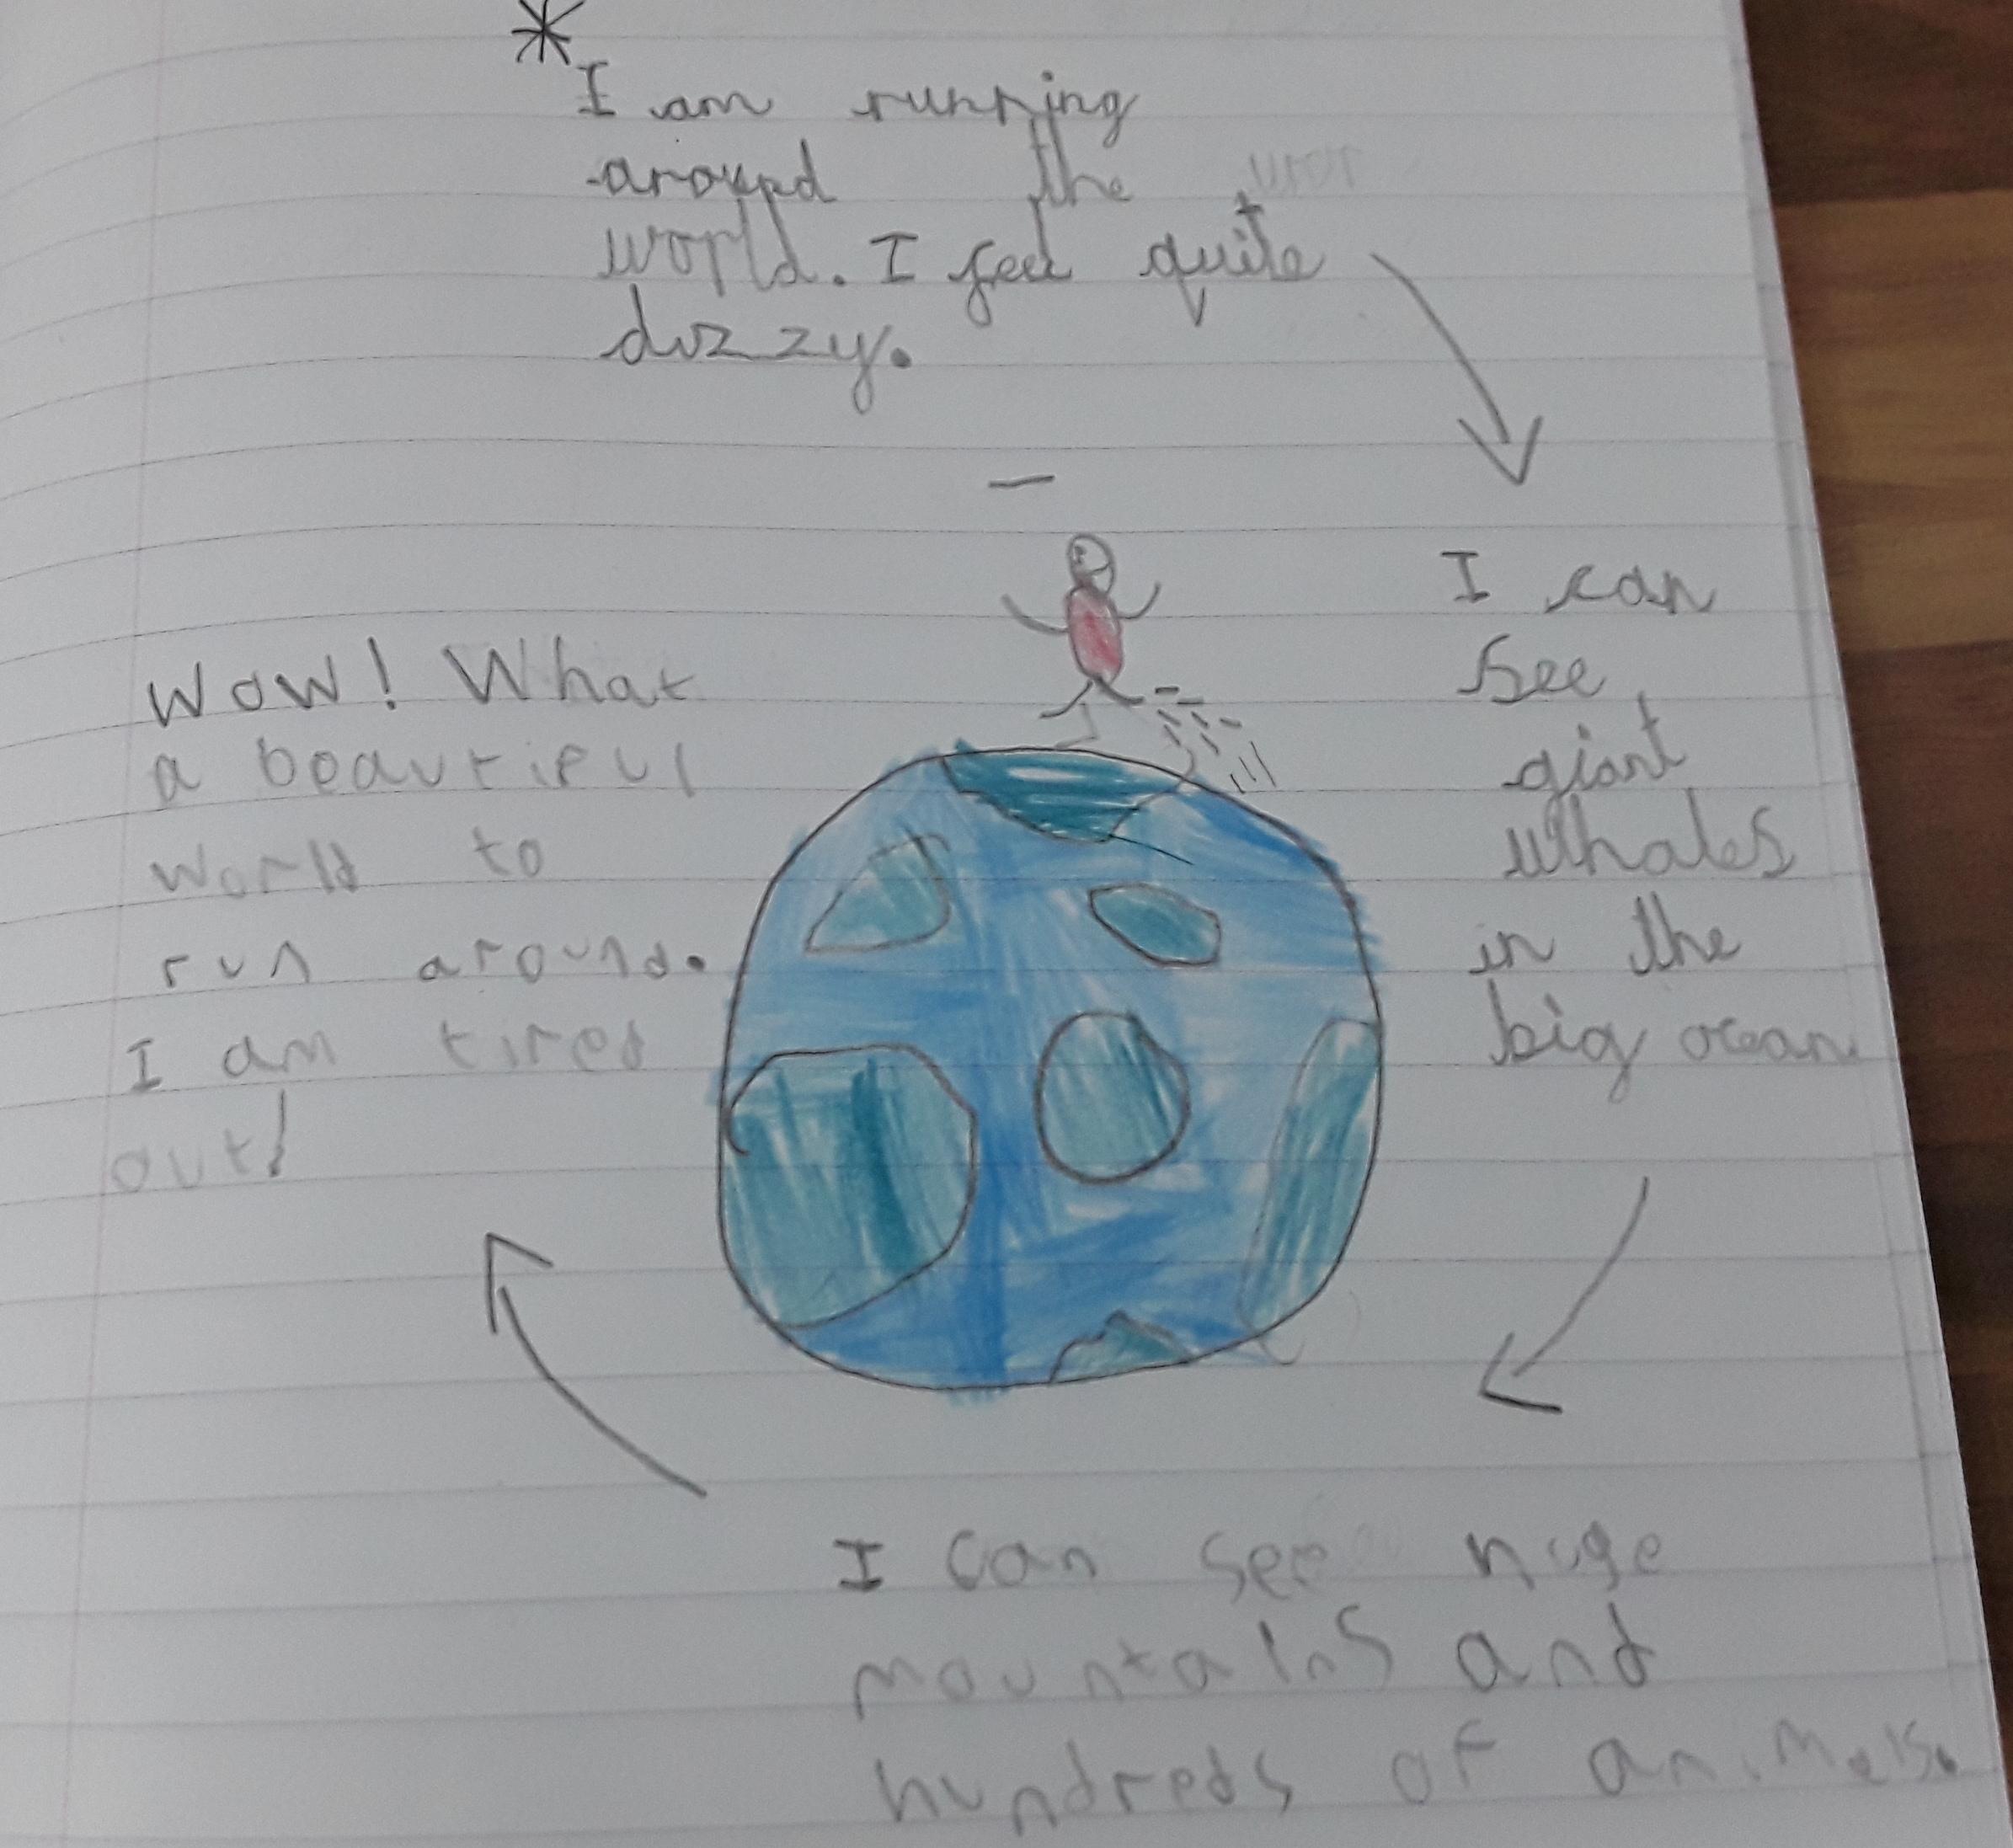 I am running
around the
world. I feel quite
dizzy.
I can
see
giant
whales
in the
big ocean
I can see huge
mountains and
hundreds of animals.
Wow! What
a beautiful
world to
run around.
I am tired
out!